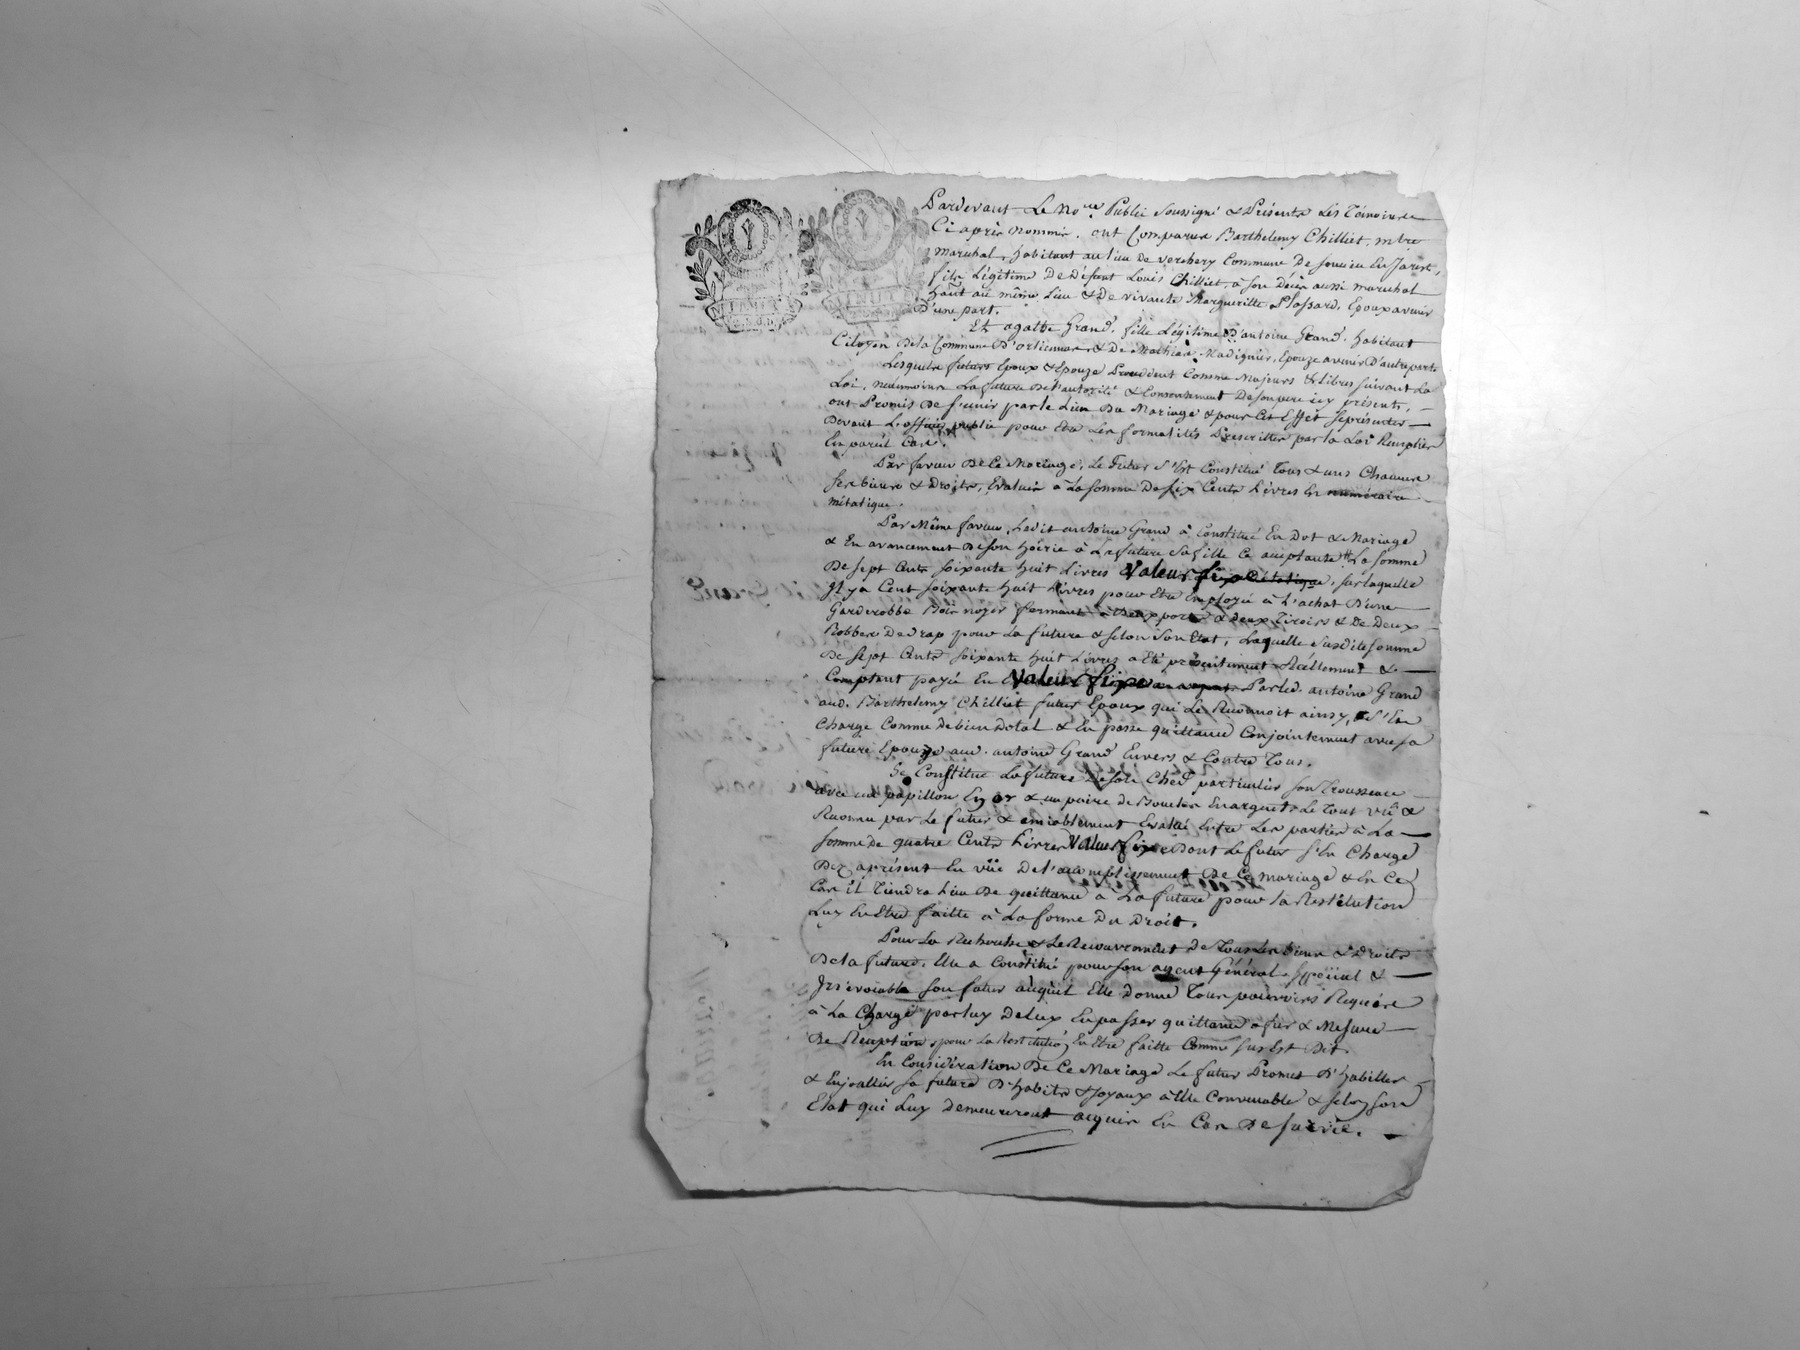 Pardevant Le No.re Public Soussigné & Présents Les Témoins
Ci après Nommés. ont Comparu Barthelemy Chilliet, mtre
marechal, habitant au lieu de verchery Commune De Soucieu En Jarest,
fils Légitime De Défunt Louis Chilliet, a son Décès aussi marechal
haût au même Lieu & De vivante Margueritte Plossard, Epoux avenir
D'une part.
Et agathe Grand, fille Légitime D'antoine Grand, habitant
Citoyen De la Commune D'orlienas & De Madignier, Epouze avenir D'autre part
Lesquels futurs Epoux & Epouze Procedent Comme Majeurs & Libres suivant La
Loi, neanmoins La future De l'autorité & Consentement De son pere icy présent,
ont Promis De s'unir par le Lien Du Mariage & pour Cet Effet se présenter
Devant L'officier public pour Etre Les formalités Prescrittes par la Loi Remplies
En pareil Cas.
Par faveur De Ce Mariage, Le Futur S'Est Constitué Tous & uns Chacuns
ses biens & Droits, Evalués a La somme De six Cents Livres En numéraire
métalique.
Par Même faveur, Ledit antoine Grand à Constitué En Dot & Mariage
& En avancement De son hoirie à La future Sa fille Ce acceptante La somme
De sept Cents soixante huit Livres valeur fixe, sur laquelle
Il y a Cent soixante huit Livres pour Etre Employé à L'achat D'une
Garderobbe Bois noyer fermant à Deux portes & deux Tiroirs & De Deux
Robbes De drap pour La future & selon Son Etat, Laquelle Susdite somme
De sept Cents soixante huit Livres a Eté présentement Réellement &
Comptant payée En valeur fixe Par led. antoine Grand
aud. Barthelemy Chilliet futur Epoux qui Le Reconnoit ainsy, S'En
Charge Comme de bien Dotal & En passe quittance Conjointement avec sa
future Epouze aud. antoine Grand Envers & Contre Tous.
Se Constitue La future De son Chef particulier son Trousseau
avec un papillon En or & un paire de Boucles En argent Le Tout vû &
Reconnu par Le futur & amiablement Evalué Entre Les parties à La
somme de quatre Cents Livres valeur fixe Dont Le futur S'En Charge
Dez aprésent En vüe De l'accomplissement De Ce mariage & En Ce
Cas Il Tiendra Lieu De quittance à La future pour la Restitution
Luy En Etre faitte à La forme Du Droit.
Pour La Recherche & Le Recouvrement De Tous Les biens & Droits
De la future, Elle a Constitué pour son agent Général Spécial &
Irrévocable son futur auquel Elle donne Tous pouvoirs Requis
à La Charge par luy Deluy En passer quittance a fur & Mesure
De Reception, pour La Restitution En Etre faitte Comme sus Est Dit.
En Considération De Ce Mariage Le futur Promet D'habiller
& Enjoailler sa future D'habits & Joyaux à Elle Convenable & selon son
Etat qui Luy Demeureront acquis En Cas De survie.